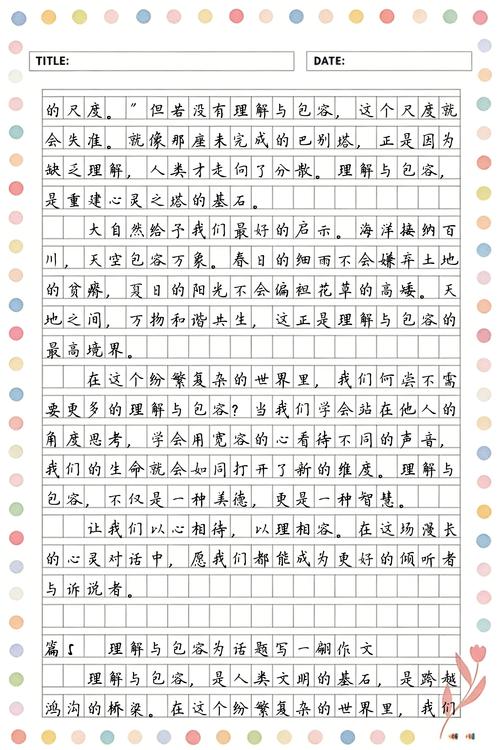 TITLE:
DATE:
的尺度。”但若没有理解与包容，这个尺度就
会失准。就像那座未完成的巴别塔，正是因为
缺乏理解，人类才走向了分散。理解与包容，
是重建心灵之塔的基石。
大自然给予我们最好的启示。海洋接纳百
川，天空包容万象。春日的细雨不会嫌弃土地
的贫瘠，夏日的阳光不会偏袒花草的高矮。天
地之间，万物和谐共生，这正是理解与包容的
最高境界。
在这个纷繁复杂的世界里，我们何尝不需
要更多的理解与包容？当我们学会站在他人的
角度思考，学会用宽容的心看待不同的声音，
我们的生命就会如同打开了新的维度。理解与
包容，不仅是一种美德，更是一种智慧。
让我们以心相待，以理相容。在这场漫长
的心灵对话中，愿我们都能成为更好的倾听者
与诉说者。
篇5 理解与包容为话题写一翩作文
理解与包容，是人类文明的基石，是跨越
鸿沟的桥梁。在这个纷繁复杂的世界里，我们